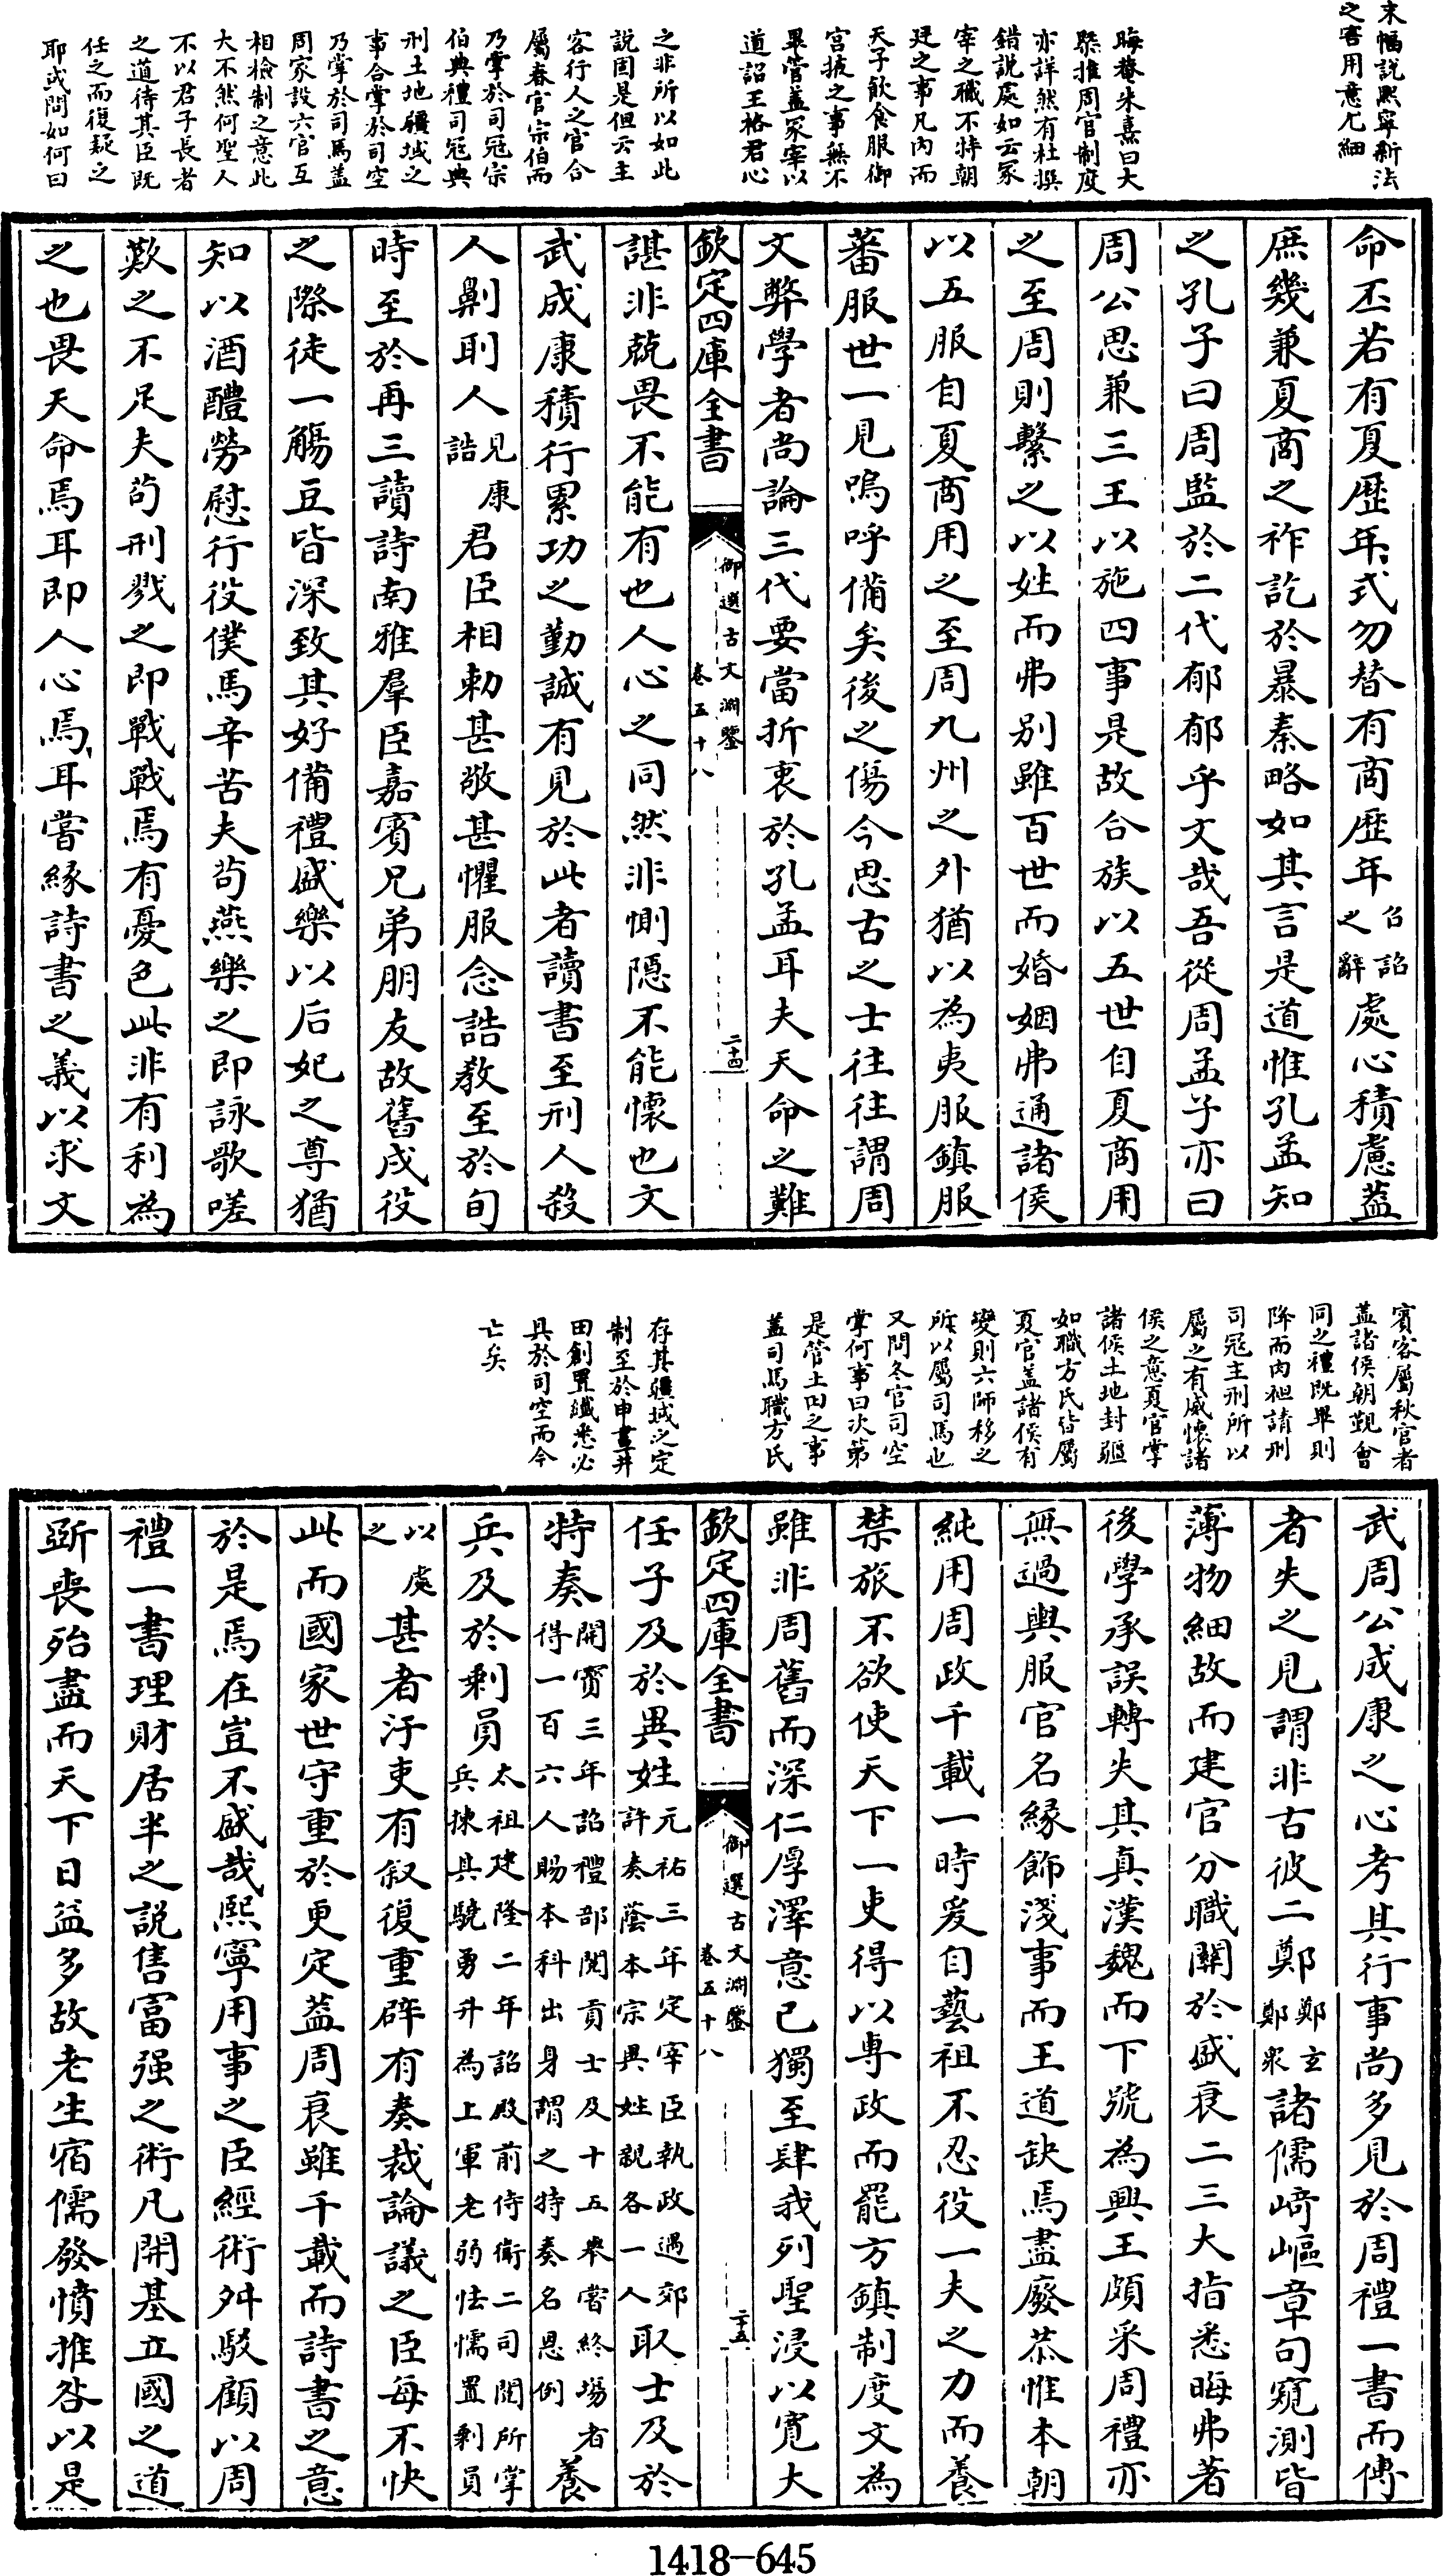 末幅說熙寧新法
之害用意尤細
晦菴朱熹曰大
槩推周官制度
亦詳然有杜撰
錯說處如云冢
宰之職不特朝
廷之事凡內而
天子飲食服御
宮掖之事無不
畢管蓋冢宰以
道詔王格君心
之非所以如此
說固是但云主
客行人之官合
屬春官宗伯而
乃掌於司冦宗
伯典禮司冦典
刑土地疆域之
事合掌於司空
乃掌於司馬蓋
周家設六官互
相檢制之意此
大不然何聖人
不以君子長者
之道待其臣既
任之而復疑之
耶或問如何曰
命丕若有夏歷年式勿替有商歷年召詔之辭處心積慮葢
庶幾兼夏商之祚訖於暴秦略如其言是道惟孔孟知
之孔子曰周監於二代郁郁乎文哉吾從周孟子亦曰
周公思兼三王以施四事是故合族以五世自夏商用
之至周則繫之以姓而弗別雖百世而婚姻弗通諸侯
以五服自夏商用之至周九州之外猶以為夷服鎮服
蕃服世一見嗚呼備矣後之傷今思古之士往往謂周
文弊學者尚論三代要當折衷於孔孟耳夫天命之難
欽定四庫全書 御選古文淵鑒 卷五十八 二十四
諶非兢畏不能有也人心之同然非惻隱不能懷也文
武成康積行累功之勤誠有見於此者讀書至刑人殺
人劓刵人見康誥君臣相勑甚敬甚懼服念誥教至於旬
時至於再三讀詩南雅羣臣嘉賓兄弟朋友故舊戍役
之際徒一觴豆皆深致其好備禮盛樂以后妃之尊猶
知以酒醴勞慰行役僕馬辛苦夫苟燕樂之即詠歌嗟
歎之不足夫苟刑戮之即戰戰焉有憂色此非有利為
之也畏天命焉耳即人心焉耳嘗緣詩書之義以求文
賓客屬秋官者
蓋諸侯朝覲會
同之禮既畢則
降而肉袒請刑
司冦主刑所以
屬之有威懷諸
侯之意夏官掌
諸侯土地封疆
如職方氏皆屬
夏官蓋諸侯有
變則六師移之
所以屬司馬也
又問冬官司空
掌何事曰次第
是管土田之事
蓋司馬職方氏
存其疆域之定
制至於申畫井
田創置纖悉必
具於司空而今
亡矣
武周公成康之心考其行事尚多見於周禮一書而傳
者失之見謂非古彼二鄭鄭玄鄭衆諸儒崎嶇章句窺測皆
薄物細故而建官分職關於盛衰二三大指悉晦弗著
後學承誤轉失其真漢魏而下號為興王頗采周禮亦
無過輿服官名緣飾淺事而王道缺焉盡廢恭惟本朝
純用周政千載一時爰自藝祖不忍役一夫之力而養
禁旅不欲使天下一吏得以專政而罷方鎮制度文為
雖非周舊而深仁厚澤意已獨至肆我列聖浸以寛大
欽定四庫全書 御選古文淵鑒 卷五十八 二十五
任子及於異姓元祐三年定宰臣執政遇郊許奏蔭本宗異姓親各一人取士及於
特奏開寳三年詔禮部閱貢士及十五舉嘗終場者得一百六人賜本科出身謂之特奏名恩例養
兵及於剩員太祖建隆二年詔殿前侍衛二司閱所掌兵揀其驍勇升為上軍老弱怯懦置剩員
以處之甚者汙吏有叙復重辟有奏裁論議之臣每不快
此而國家世守重於更定葢周衰雖千載而詩書之意
於是焉在豈不盛哉熙寧用事之臣經術舛駁顧以周
禮一書理財居半之說售富强之術凡開基立國之道
斲喪殆盡而天下日益多故老生宿儒發憤推咎以是
1418-645